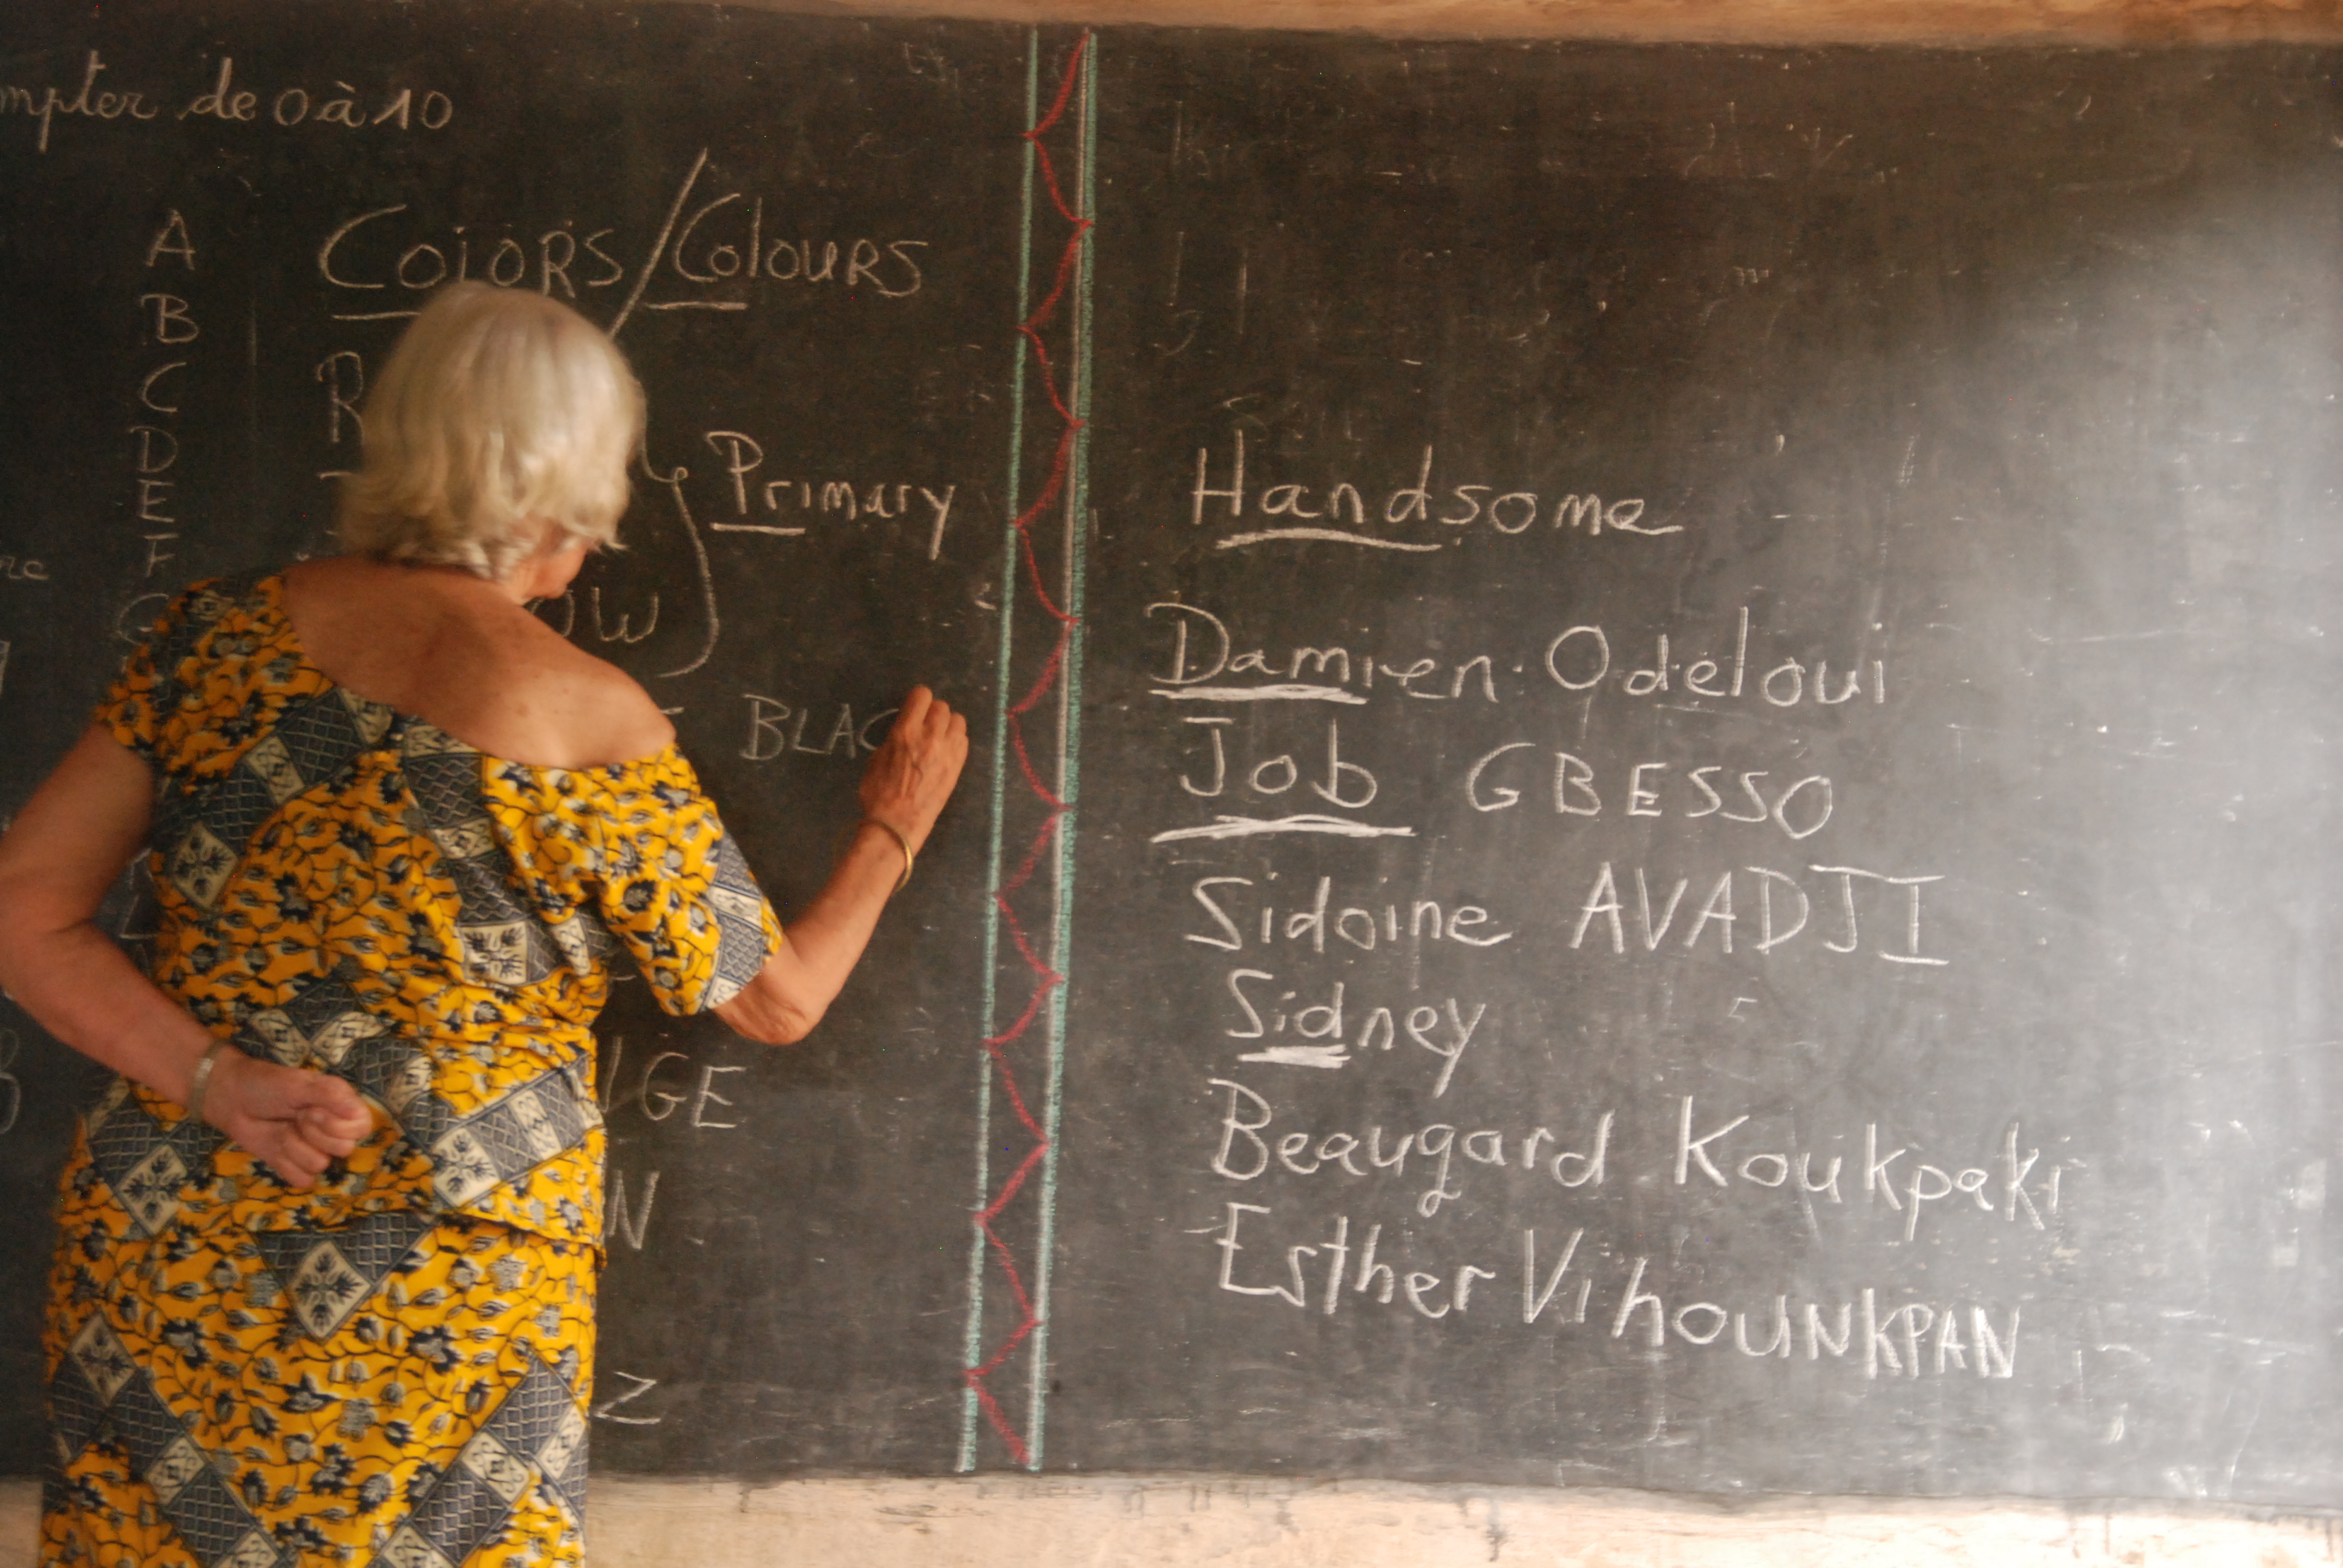 de 0 à 10
A
B
C
D
E
F
Colors/Colours
Primary
BLAC
Z
Handsome
Damien Odeloui
Job GBESSO
Sidoine AVADJI
Sidney
Beaugard Koukpaki
Esther VihOUNKPAN